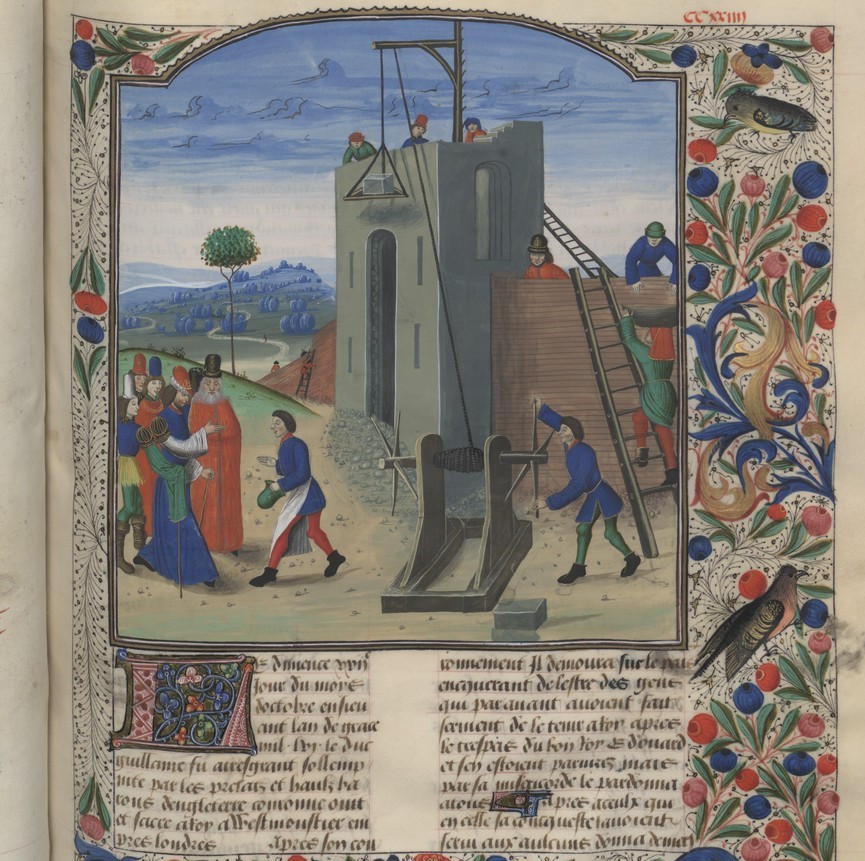 CCxxiiii
Le dimence xviii
jour du mois
doctobre ensieu
ant lan de grace
mil lxvi le duc
guillame fu atresgrant sollemp
nite par les prelatz et haulz ba
rons dengleterre couronne oint
et sacre a roy a Westmoustier em
pres londres Apres son cou
ronnement Il demoura sur le pais
enquerant de lestre des gens
qui parauant auoient fait
serment de le tenir a roy apres
le trespas du bon roy Edouard
et sen estoient pariurez mais
par sa misericorde le pardonna
a tous Et apres a ceulx qui
en celle sa conqueste lauoient
serui aux aulcuns donna